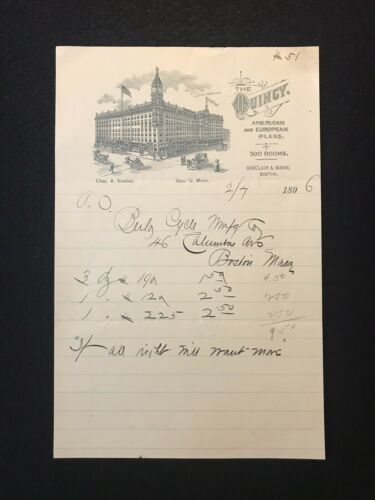 # 51
THE
QUINCY.
AMERICAN
AND EUROPEAN
PLANS.
500 ROOMS.
SINCLAIR & MANN,
BOSTON.
Chas. A. Sinclair. Geo. G. Mann.
2/7 1896
A. O.
Cycle Manfg Co
46 Columbus Ave
Boston Mass
3 dz # 19a 1 50 4.50
1 " # 12a 2 50 250
1 " # 225 2 50 250
9 50
"3/ all right will want more"